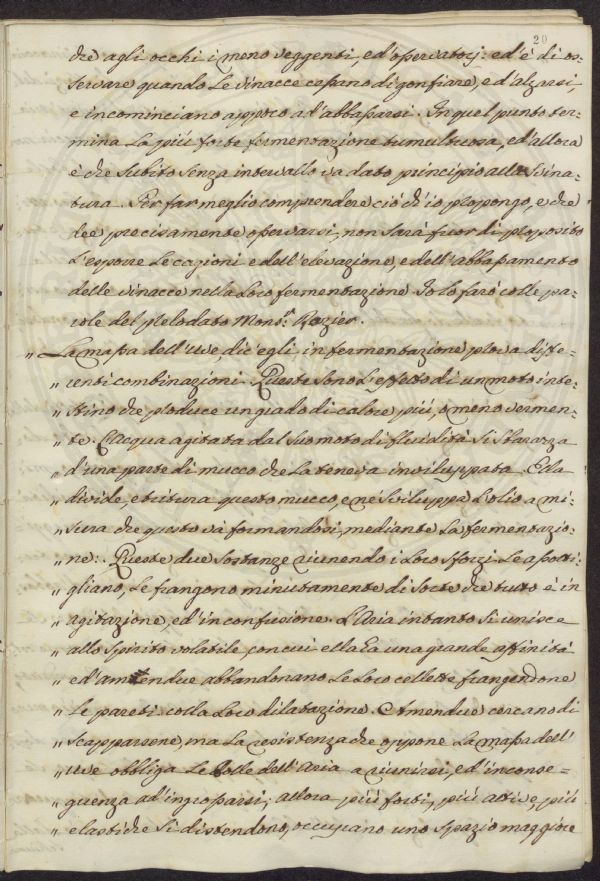 20
che agli occhi i meno veggenti, ed'osservatorj: ed'è di os=
servare quando le vinacce cessano di gonfiare, ed'alzarsi,
e incominciano appoco ad'abbassarsi. In quel punto ter=
mina la più forte fermentazione tumultuosa, ed'allora
è che subito senza intervallo va dato principio alla svina=
tura. Per far meglio comprendere ciò ch'io propongo, e che
dee precisamente osservarsi, non sarà fuor di proposito
l'esporre le cagioni e dell'elevazione, e dell'abbassamento
delle vinacce nella loro fermentazione. Io lo farò colle pa=
role del prelodato Mons.r Rozier.
„ La massa dell'Uve, dic'egli, in fermentazione prova diffe=
„ renti combinazioni. Queste sono l'effetto di un moto inte=
„ stino che produce un grado di calore più, o meno vermen=
„ te. L'Acqua agitata dal suo moto di fluidità si sbarazza
„ d'una parte di mucco che la teneva inviluppata. Ella
„ divide, e tritura questo mucco, e ne sviluppa l'olio a mi=
„ sura che questo và formandosi, mediante la fermentazio=
„ ne: Queste due sostanze riunendo i loro sforzi le assotti=
„ gliano, le frangono minutamente di sorte che tutto è in
„ agitazione, ed'in confusione. L'Aria intanto si unisce
„ allo spirito volatile, con cui ella ha una grande affinità
„ ed'amendue abbandonano le loro cellette frangendone
„ le pareti colla loro dilatazione. Amendue cercano di
„ scapparsene, ma la resistenza che oppone la massa dell'
„ uve obbliga le bolle dell'Aria a riunirsi, ed'in conse=
„ guenza ad'ingrossarsi; allora più forti, più attive, più
„ elastiche si distendono, occupano uno spazio maggiore